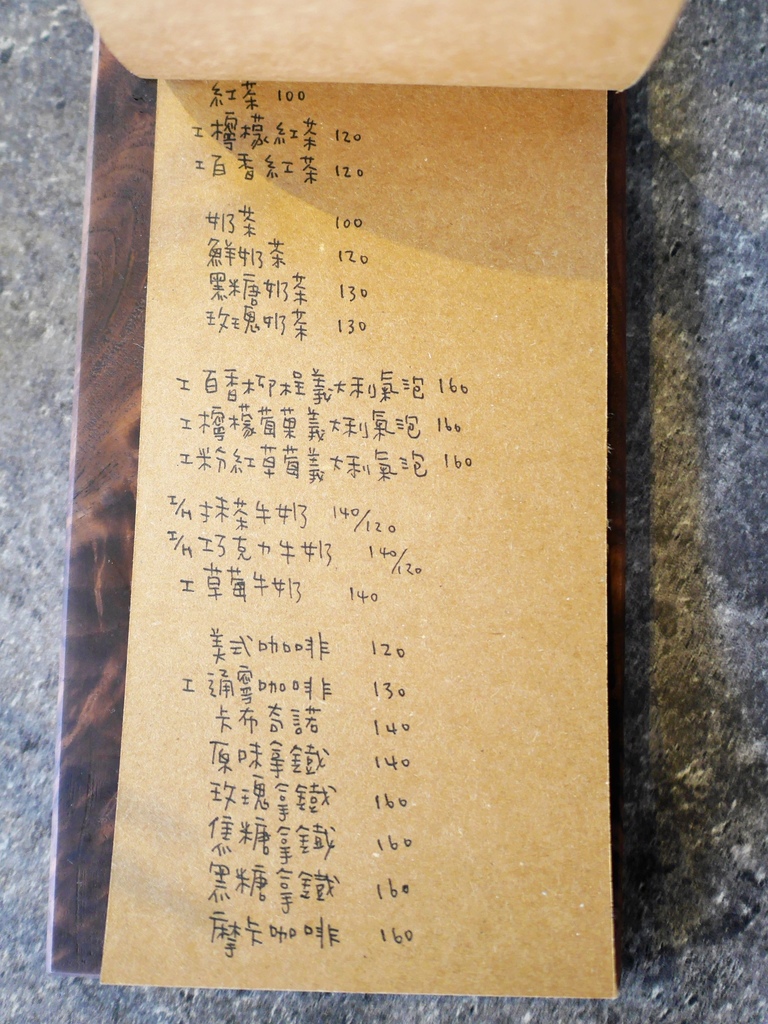 紅茶 100
I 檸檬紅茶 120
I 百香紅茶 120
奶茶 100
鮮奶茶 120
黑糖奶茶 130
玫瑰奶茶 130
I 百香柳橙義大利氣泡 160
I 檸檬萄菓義大利氣泡 160
I 粉紅草莓義大利氣泡 160
I/H 抹茶牛奶 140/120
I/H 巧克力牛奶 140/120
I 草莓牛奶 140
美式咖啡 120
I 通寧咖啡 130
卡布奇諾 140
原味拿鐵 140
玫瑰拿鐵 160
焦糖拿鐵 160
黑糖拿鐵 160
摩卡咖啡 160